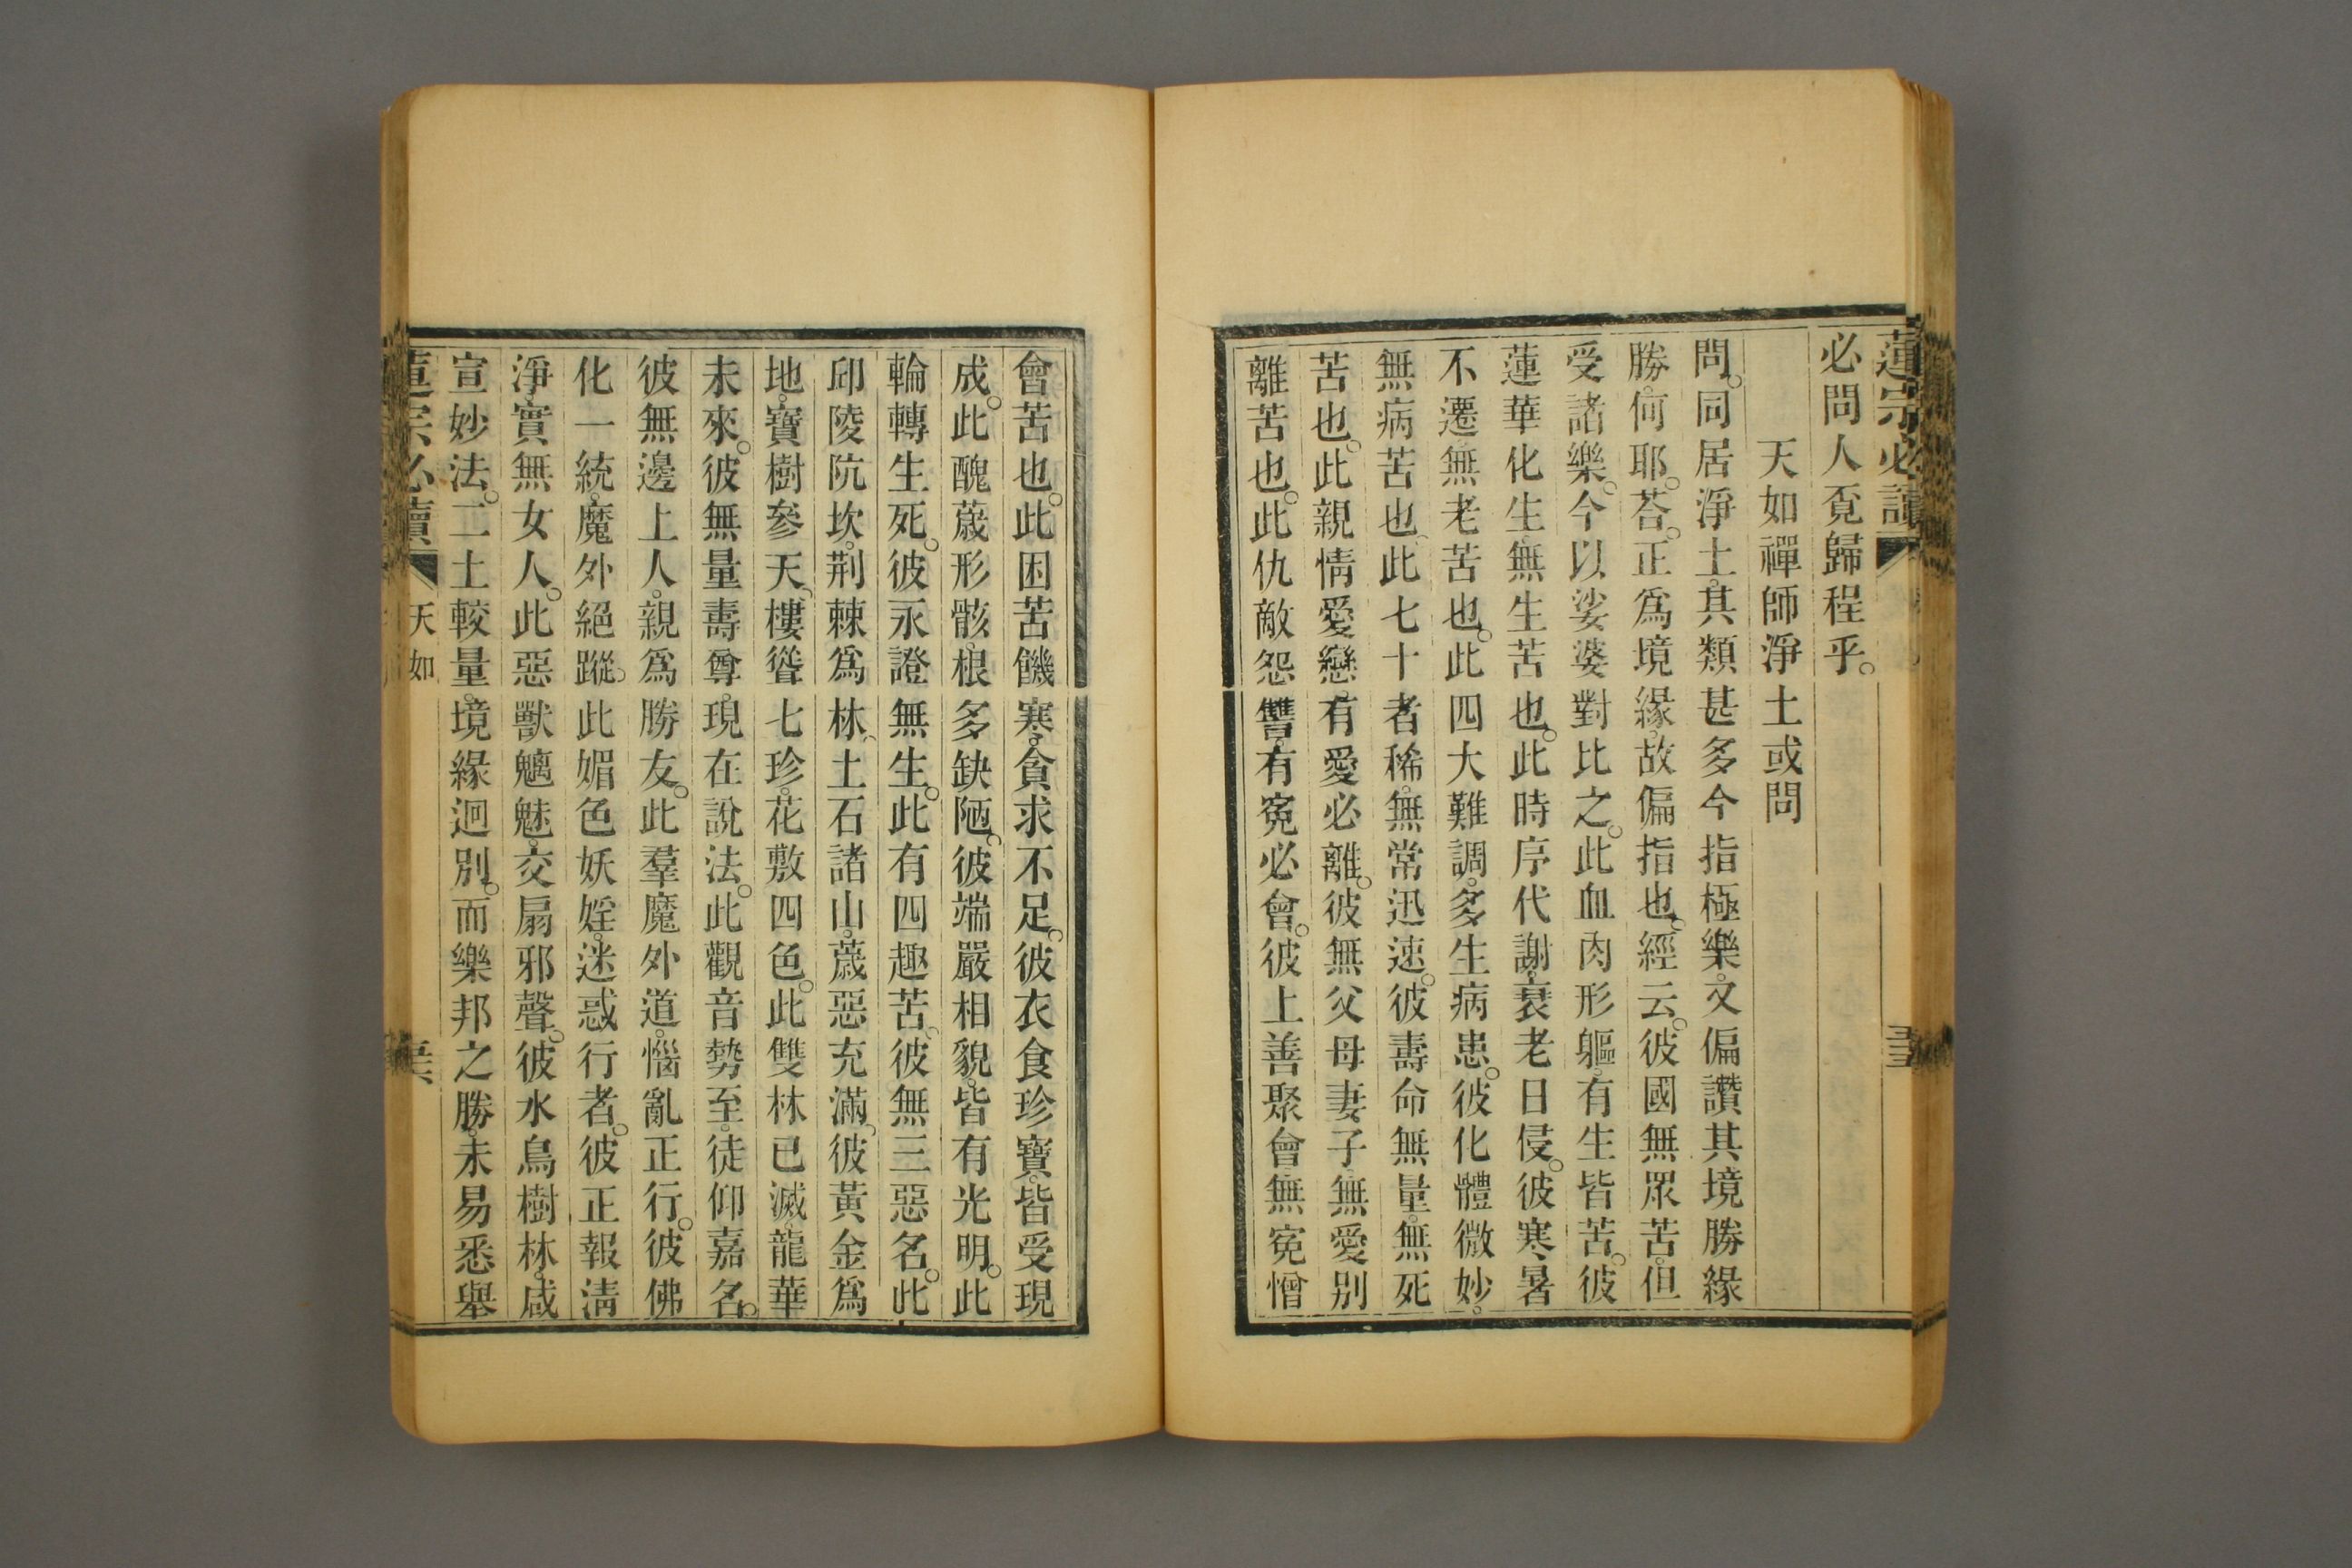 蓮宗必讀
必問人覔歸程乎。
天如禪師淨土或問
問。同居淨土。其類甚多今指極樂。文偏讚其境勝緣
勝。何耶。荅。正爲境緣。故偏指也。經云。彼國無眾苦。但
受諸樂。今以娑婆對比之。此血肉形軀。有生皆苦。彼
蓮華化生。無生苦也。此時序代謝。衰老日侵。彼寒暑
不遷。無老苦也。此四大難調。多生病患。彼化體微妙。
無病苦也。此七十者稀。無常迅速。彼壽命無量。無死
苦也。此親情愛戀。有愛必離。彼無父母妻子。無愛別
離苦也。此仇敵怨讐。有寃必會。彼上善聚會。無寃憎
會苦也。此困苦饑寒。貪求不足。彼衣食珍寶。皆受現
成。此醜薉形骸。根多缺陋。彼端嚴相貌。皆有光明。此
輪轉生死。彼永證無生。此有四趣苦。彼無三惡名。此
邱陵阬坎。荆棘爲林。土石諸山。薉惡充滿。彼黃金爲
地。寶樹參天。樓聳七珍。花敷四色。此雙林已滅。龍華
未來。彼無量壽尊。現在說法。此觀音勢至。徒仰嘉名。
彼無邊上人。親爲勝友。此羣魔外道。惱亂正行。彼佛
化一統。魔外絕蹤。此媚色妖婬。迷惑行者。彼正報淸
淨。實無女人。此惡獸魑魅。交扇邪聲。彼水鳥樹林。咸
宣妙法。二土較量。境緣迥別。而樂邦之勝。未易悉舉
蓮宗必讀
天如